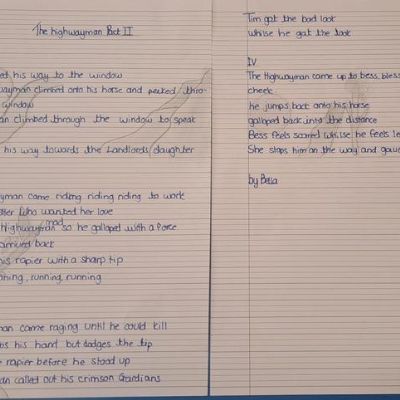 The highwayman Part II
ed his way to the window
wayman climbed onto his horse and peeked thro-
window
an climbed through the window to speak
his way towards the Landlords daughter
yman came riding riding riding to work
who wanted her love
Highwayman mad so he galloped with a force
arrived back
his rapier with a sharp tip
ning, running, running
man came raging until he could kill
bs his hand but dodges the tip
rapier before he stood up
an called out his crimson Gardians
Tim got the bad look
whilse he got the look
IV
The Highwayman came up to bess, bless
cheek.
he jumps back onto his horse
galloped back into the distance
Bess feels scared whilse he feels le
She stops him on the way and gave
by Bella